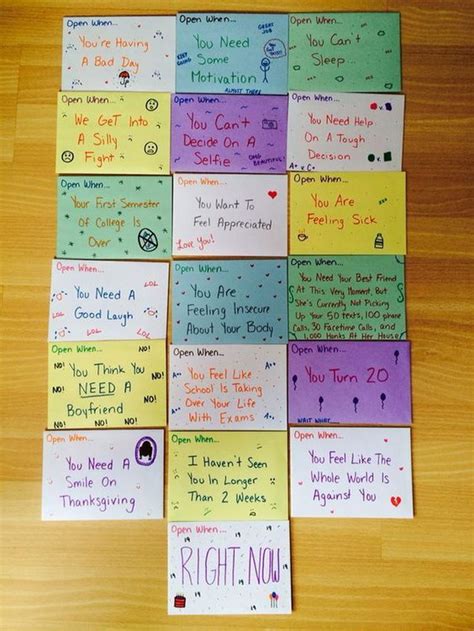 Open When...
You're Having
A Bad Day
Open When...
You Need
Some
Motivation
KEEP GOING
GREAT JOB
ALMOST THERE
Open When...
You Can't
Sleep
Open When...
We Get Into
A Silly
Fight
Open When...
You Can't
Decide On A
Selfie
OMG BEAUTIFUL!
Open When...
You Need Help
On A Tough
Decision
Open When...
Your First Semester
Of College Is
Over
Open When...
You Want To
Feel Appreciated
Love You!
Open When...
You Are
Feeling Sick
Open When...
You Need A
Good Laugh
LOL
LOL
LOL
LOL
Open When...
You Are
Feeling Insecure
About Your Body
Open When...
You Need Your Best Friend
At This Very Moment, But
She's Currently Not Picking
Up Your 50 texts, 100 phone
Calls, 30 Facetime Calls, and
1,000 Honks At Her House
Open When...
You Think You
NEED A
Boyfriend
NO!
NO!
NO!
NO!
NO!
NO!
NO!
Open When...
You Feel Like
School Is Taking
Over Your Life
With Exams
A+
A+
A+
Open When...
You Turn 20
WAIT WHAT...
Open When...
You Need A
Smile On
Thanksgiving
Open When...
I Haven't Seen
You In Longer
Than 2 Weeks
Open When...
You Feel Like The
Whole World Is
Against You
Open When...
RIGHT NOW
19
19
19
19